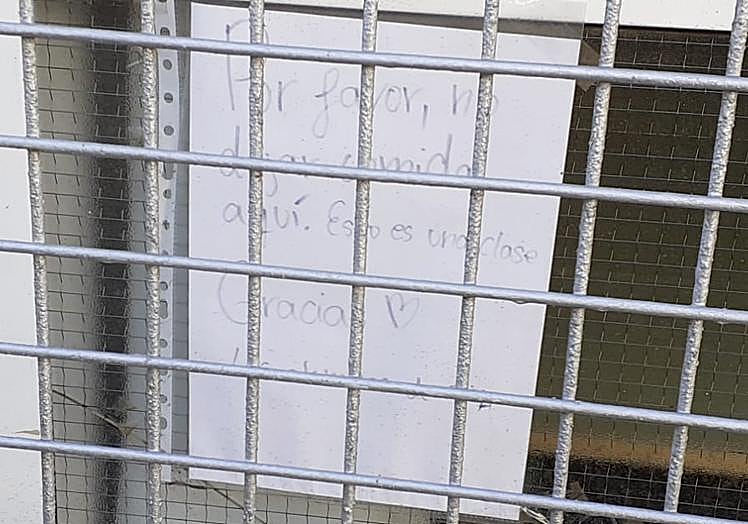 Por favor, no
dejar comida
aquí. Esto es una clase
Gracias ♡